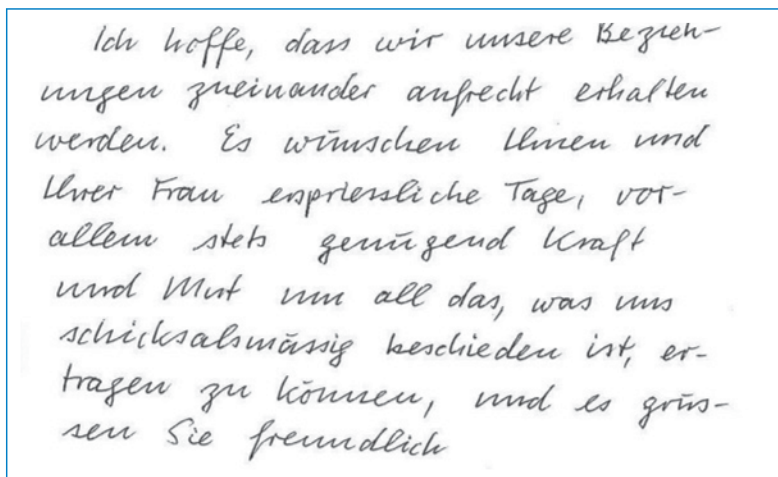 Ich hoffe, dass wir unsere Bezieh-
ungen zueinander aufrecht erhalten
werden. Es wünschen Ihnen und
Ihrer Frau erspriessliche Tage, vor-
allem stets genügend Kraft
und Mut um all das, was uns
schicksalsmässig beschieden ist, er-
tragen zu können, und es grüs-
sen Sie freundlich